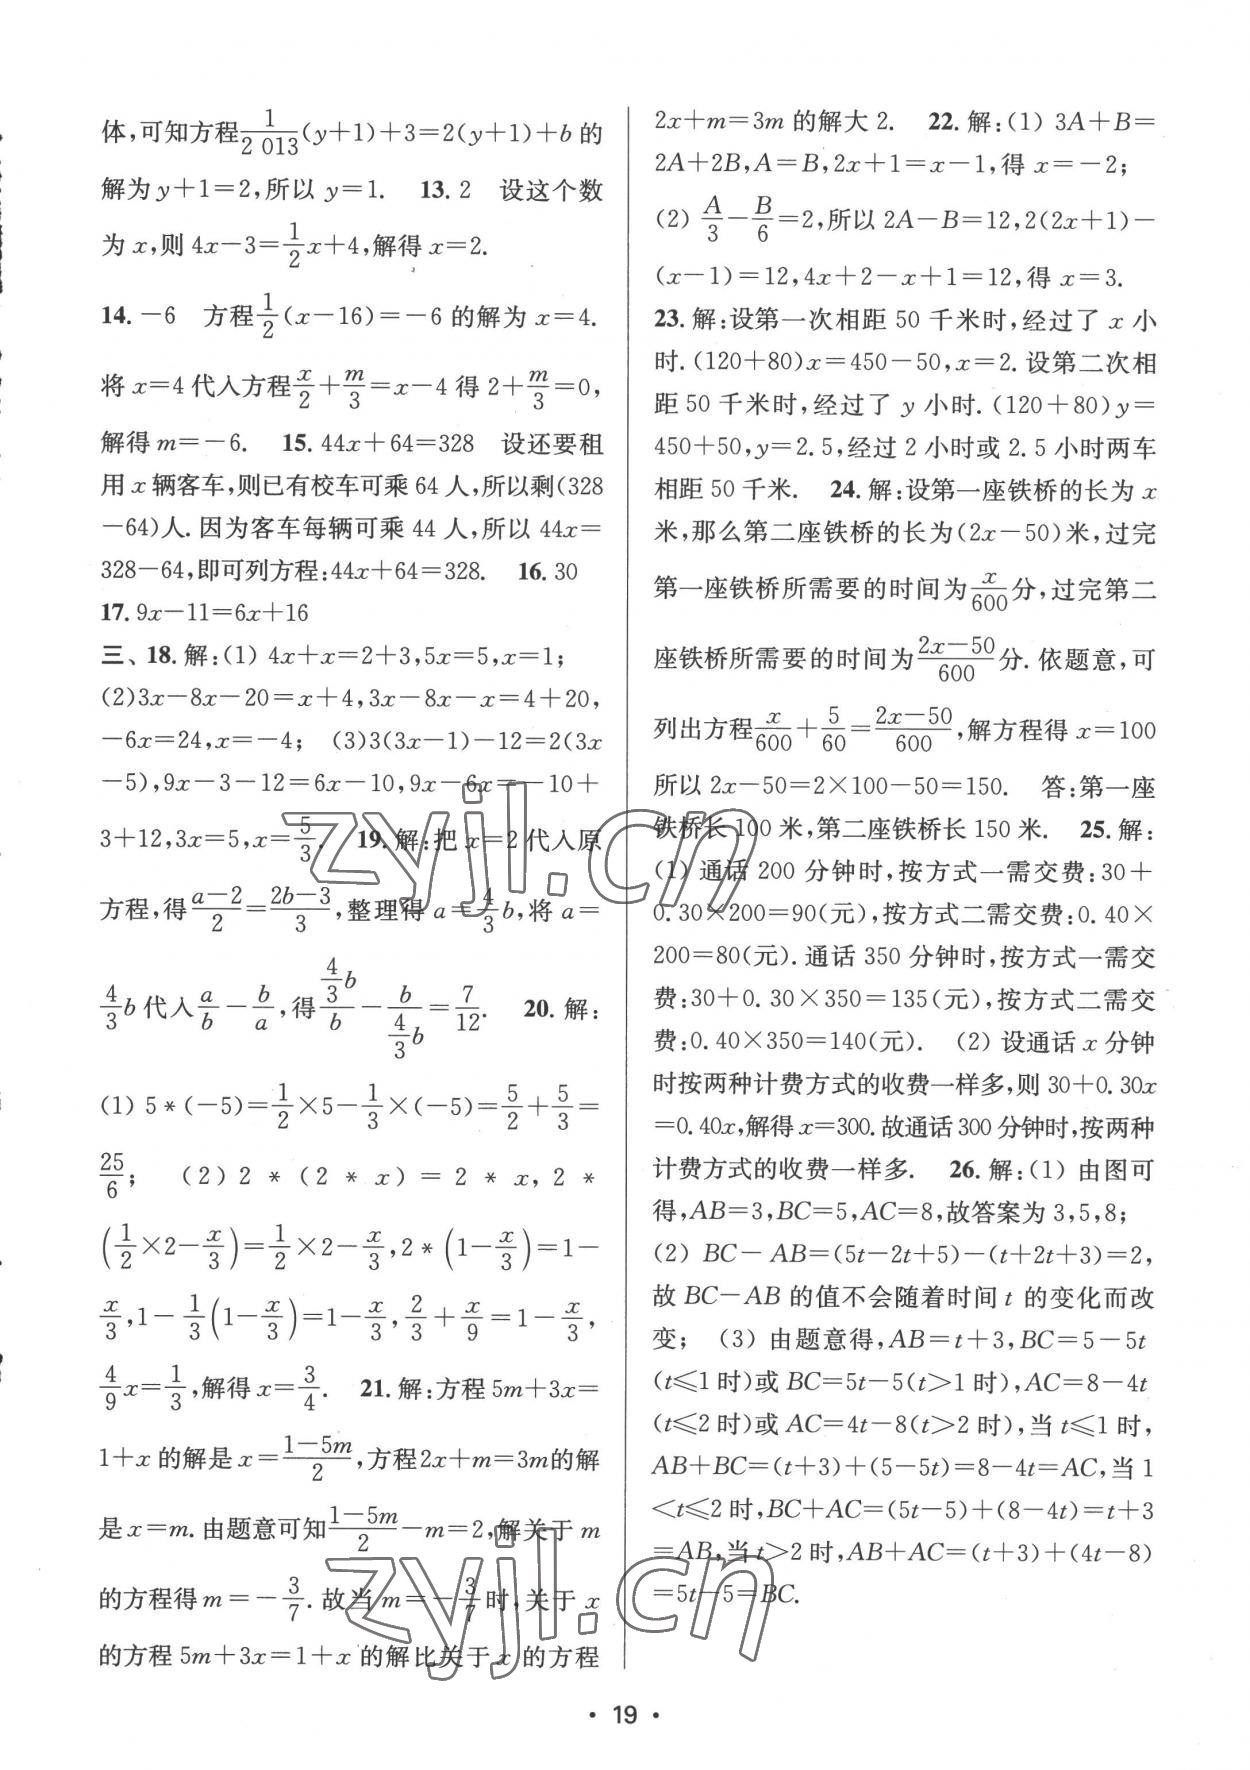 体,可知方程1/2 013(y+1)+3=2(y+1)+b 的
解为 y+1=2,所以 y=1. 13. 2 设这个数
为 x,则 4x-3=1/2x+4,解得 x=2.
14. -6 方程1/2(x-16)=-6 的解为 x=4.
将 x=4 代入方程x/2+m/3=x-4 得 2+m/3=0,
解得 m=-6. 15. 44x+64=328 设还要租
用 x 辆客车,则已有校车可乘 64 人,所以剩(328
-64)人. 因为客车每辆可乘 44 人,所以 44x=
328-64,即可列方程:44x+64=328. 16. 30
17. 9x-11=6x+16
三、18. 解:(1) 4x+x=2+3,5x=5,x=1;
(2)3x-8x-20=x+4,3x-8x-x=4+20,
-6x=24,x=-4; (3)3(3x-1)-12=2(3x
-5),9x-3-12=6x-10,9x-6x=-10+
3+12,3x=5,x=5/3. 19. 解:把 x=2 代入原
方程,得(a-2)/2=(2b-3)/3,整理得 a=4/3b,将 a=
4/3b 代入 a/b-b/a,得(4/3b)/b-b/(4/3b)=7/12. 20. 解:
(1) 5*(-5)=1/2×5-1/3×(-5)=5/2+5/3=
25/6; (2) 2*(2*x)=2*x, 2*
(1/2×2-x/3)=1/2×2-x/3,2*(1-x/3)=1-
x/3,1-1/3(1-x/3)=1-x/3,2/3+x/9=1-x/3,
4/9x=1/3,解得 x=3/4. 21. 解:方程 5m+3x=
1+x 的解是 x=(1-5m)/2,方程2x+m=3m的解
是 x=m. 由题意可知(1-5m)/2-m=2,解关于 m
的方程得 m=-3/7. 故当 m=-3/7时,关于 x
的方程 5m+3x=1+x 的解比关于 x 的方程
2x+m=3m 的解大 2. 22. 解:(1) 3A+B=
2A+2B,A=B,2x+1=x-1,得 x=-2;
(2) A/3-B/6=2,所以 2A-B=12,2(2x+1)-
(x-1)=12,4x+2-x+1=12,得 x=3.
23. 解:设第一次相距 50 千米时,经过了 x 小
时. (120+80)x=450-50,x=2. 设第二次相
距 50 千米时,经过了 y 小时. (120+80)y=
450+50,y=2.5,经过 2 小时或 2.5 小时两车
相距 50 千米. 24. 解:设第一座铁桥的长为 x
米,那么第二座铁桥的长为(2x-50)米,过完
第一座铁桥所需要的时间为x/600分,过完第二
座铁桥所需要的时间为(2x-50)/600分. 依题意,可
列出方程x/600+5/60=(2x-50)/600,解方程得 x=100
所以 2x-50=2×100-50=150. 答:第一座
铁桥长 100 米,第二座铁桥长 150 米. 25. 解:
(1) 通话 200 分钟时,按方式一需交费:30+
0.30×200=90(元),按方式二需交费:0.40×
200=80(元). 通话 350 分钟时,按方式一需交
费:30+0.30×350=135(元),按方式二需交
费:0.40×350=140(元). (2) 设通话 x 分钟
时按两种计费方式的收费一样多,则 30+0.30x
=0.40x,解得 x=300. 故通话 300 分钟时,按两种
计费方式的收费一样多. 26. 解:(1) 由图可
得,AB=3,BC=5,AC=8,故答案为 3,5,8;
(2) BC-AB=(5t-2t+5)-(t+2t+3)=2,
故 BC-AB 的值不会随着时间 t 的变化而改
变; (3) 由题意得,AB=t+3,BC=5-5t
(t⩽1 时)或 BC=5t-5(t>1 时),AC=8-4t
(t⩽2 时)或 AC=4t-8(t>2 时),当 t⩽1 时,
AB+BC=(t+3)+(5-5t)=8-4t=AC,当 1
<t⩽2 时,BC+AC=(5t-5)+(8-4t)=t+3
=AB,当 t>2 时,AB+AC=(t+3)+(4t-8)
=5t-5=BC.
zyjl.cn
zyjl.cn
· 19 ·